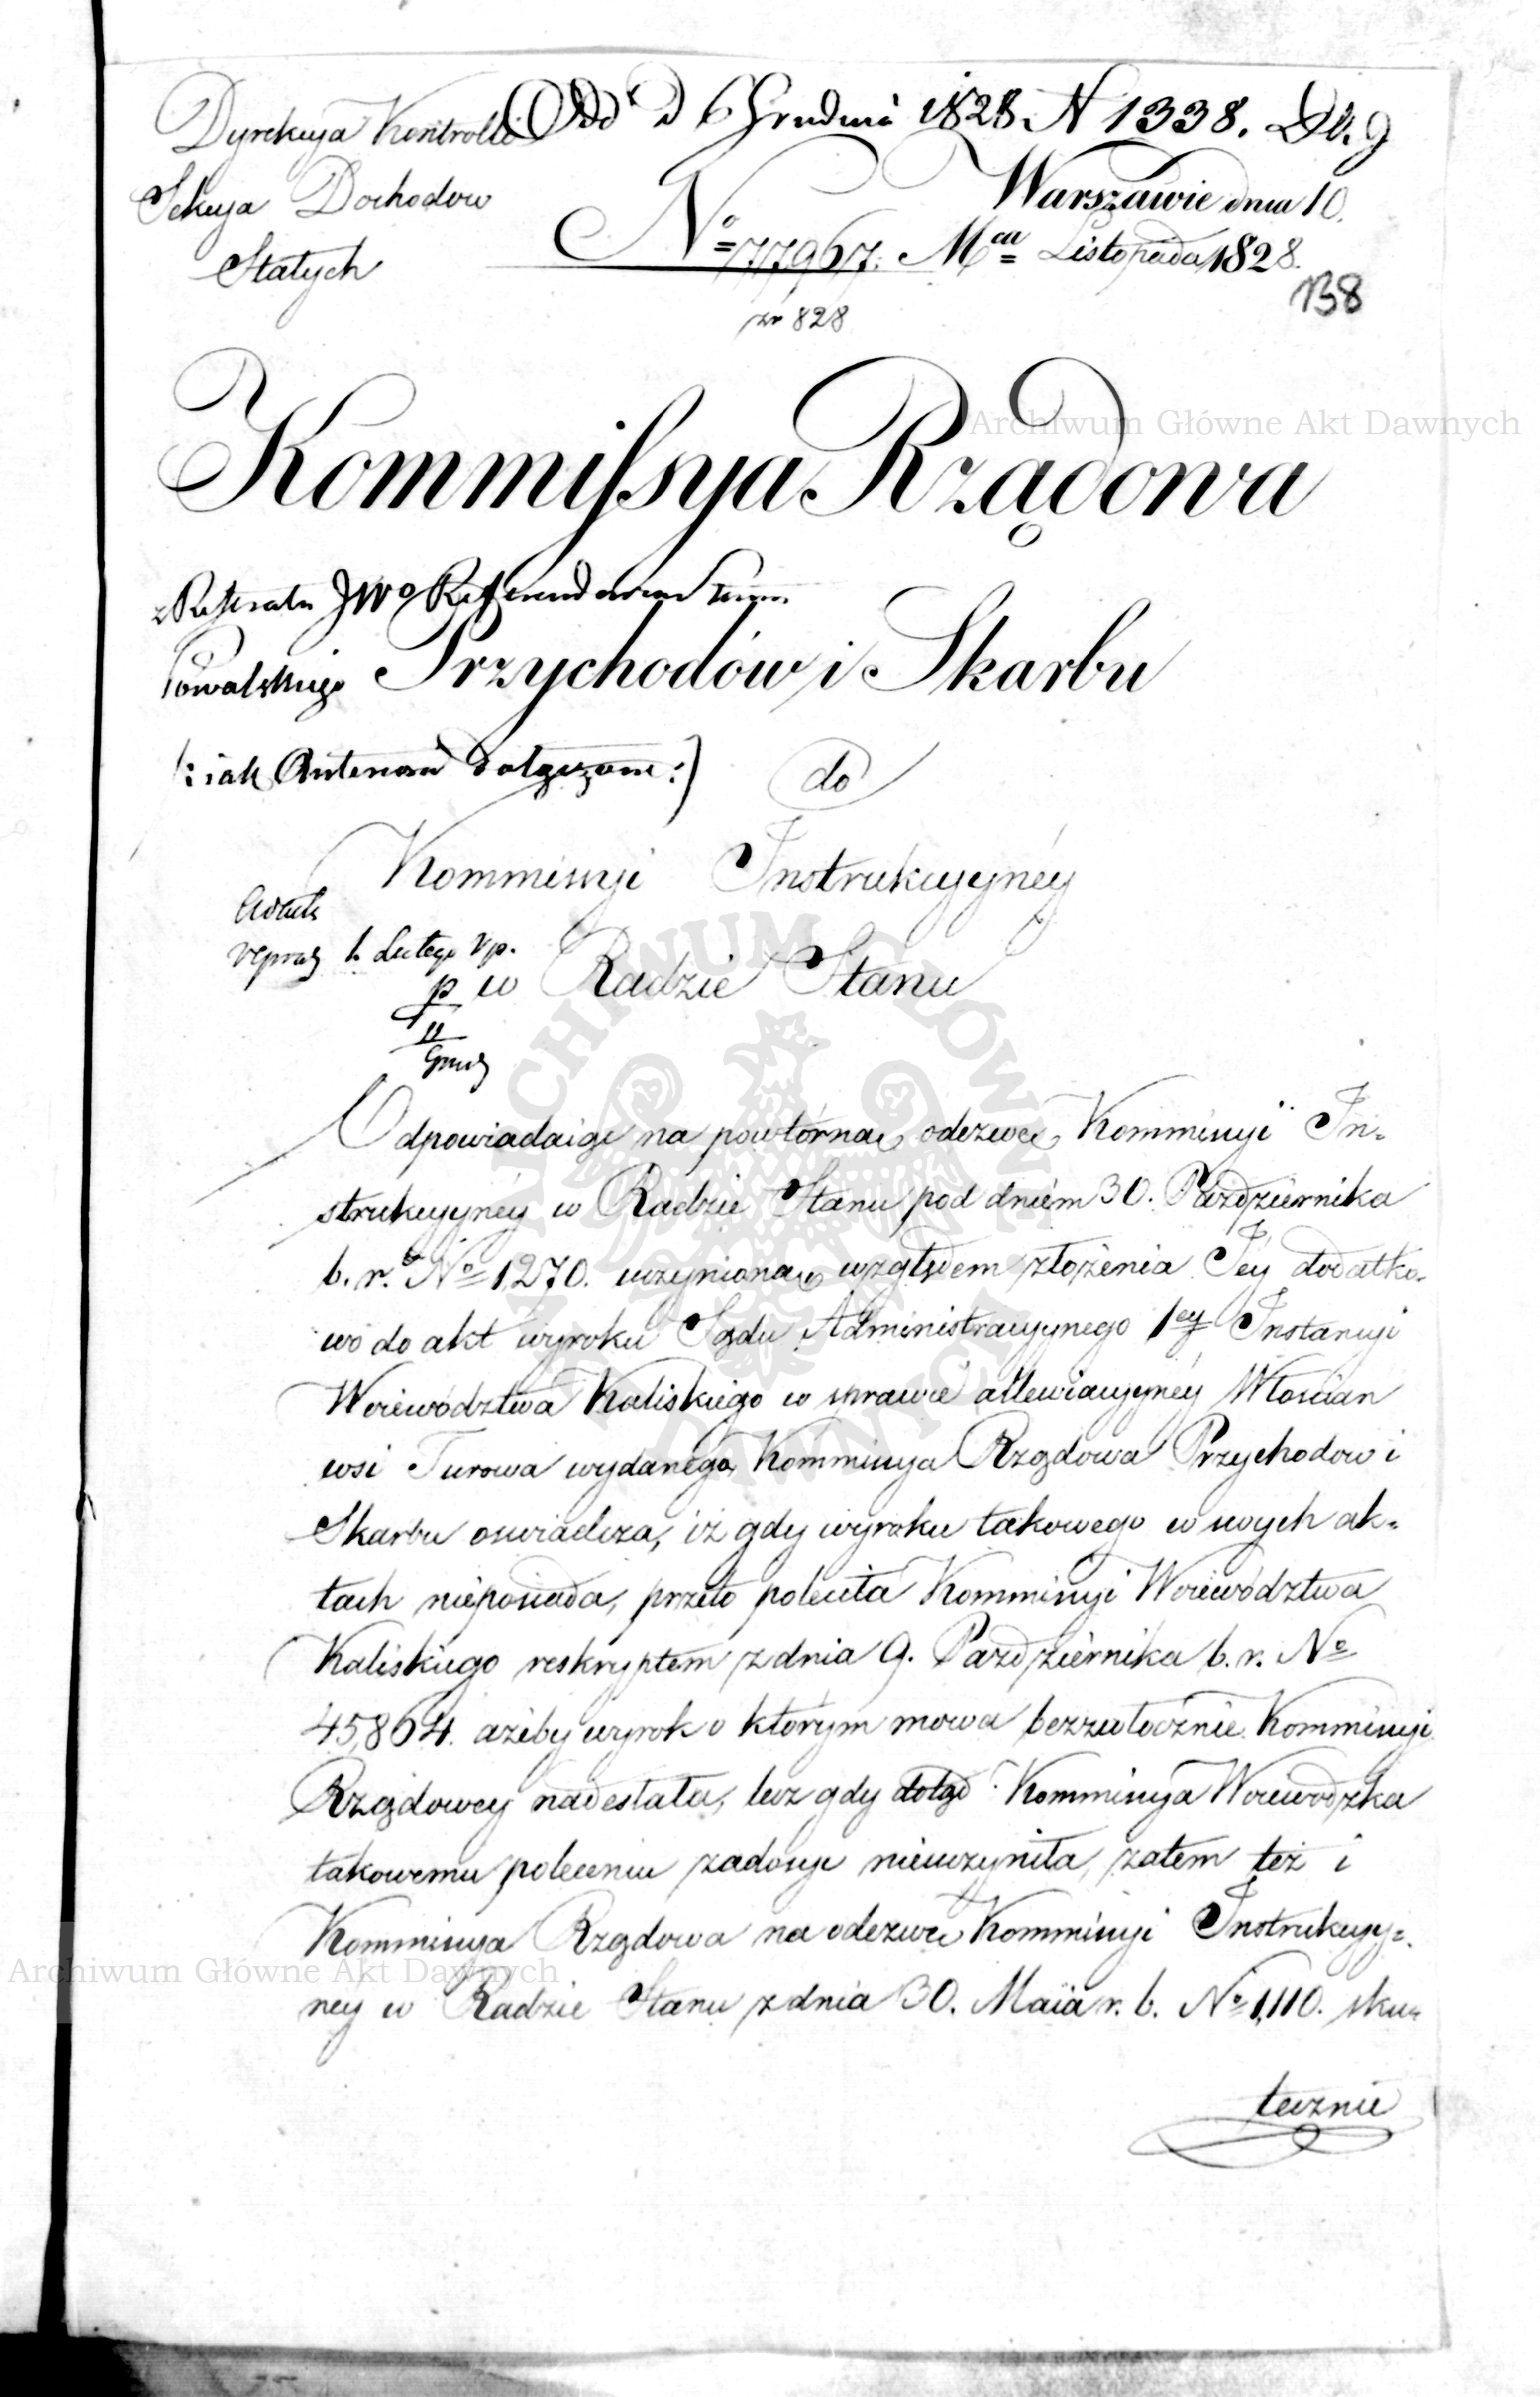 Dyrekcya Kontrolli
Odd d 6 Grudnia 1828 N 1338.
Sekcya Dochodow
Warszawie dnia 10.
Stałych
No 77967. Mca Listopada 1828.
138
828
Kommissya Rządowa
Archiwum Główne Akt Dawnych
JWo Referendarza
Przychodów i Skarbu
(: iak dołączam :)
do
Kommissyi Instrukcyyney
1. Lutego
w Radzie Stanu
Odpowiadaiąc na powtórną odezwę Kommissyi In=
strukcyyney w Radzie Stanu pod dniem 30. Października
b. r. No 1270. uczynioną, względem złożenia Jey dodatko=
wo do akt wyroku Sądu Administracyynego 1ey Instancyi
Woiewództwa Kaliskiego w sprawie allewiacyyney Włościan
wsi Turowa wydanego, Kommissya Rządowa Przychodow i
Skarbu oswiadcza, iż gdy wyroku takowego w swych ak=
tach nieposiada, przeto poleciła Kommissyi Woiewództwa
Kaliskiego reskryptem z dnia 9. Października b. r. No
45,864. ażeby wyrok o którym mowa bezzwłocznie Kommissyi
Rządowey nadesłała, lecz gdy dotąd Kommissya Woiewodzka
takowemu poleceniu zadosyc nieuczyniła, zatem też i
Kommissya Rządowa na odezwę Kommissyi Instrukcyy=
ney w Radzie Stanu z dnia 30. Maia r. b. No 1,110. sku=
Archiwum Główne Akt Dawnych
tecznie
ARCHIWUM GŁÓWNE AKT DAWNYCH